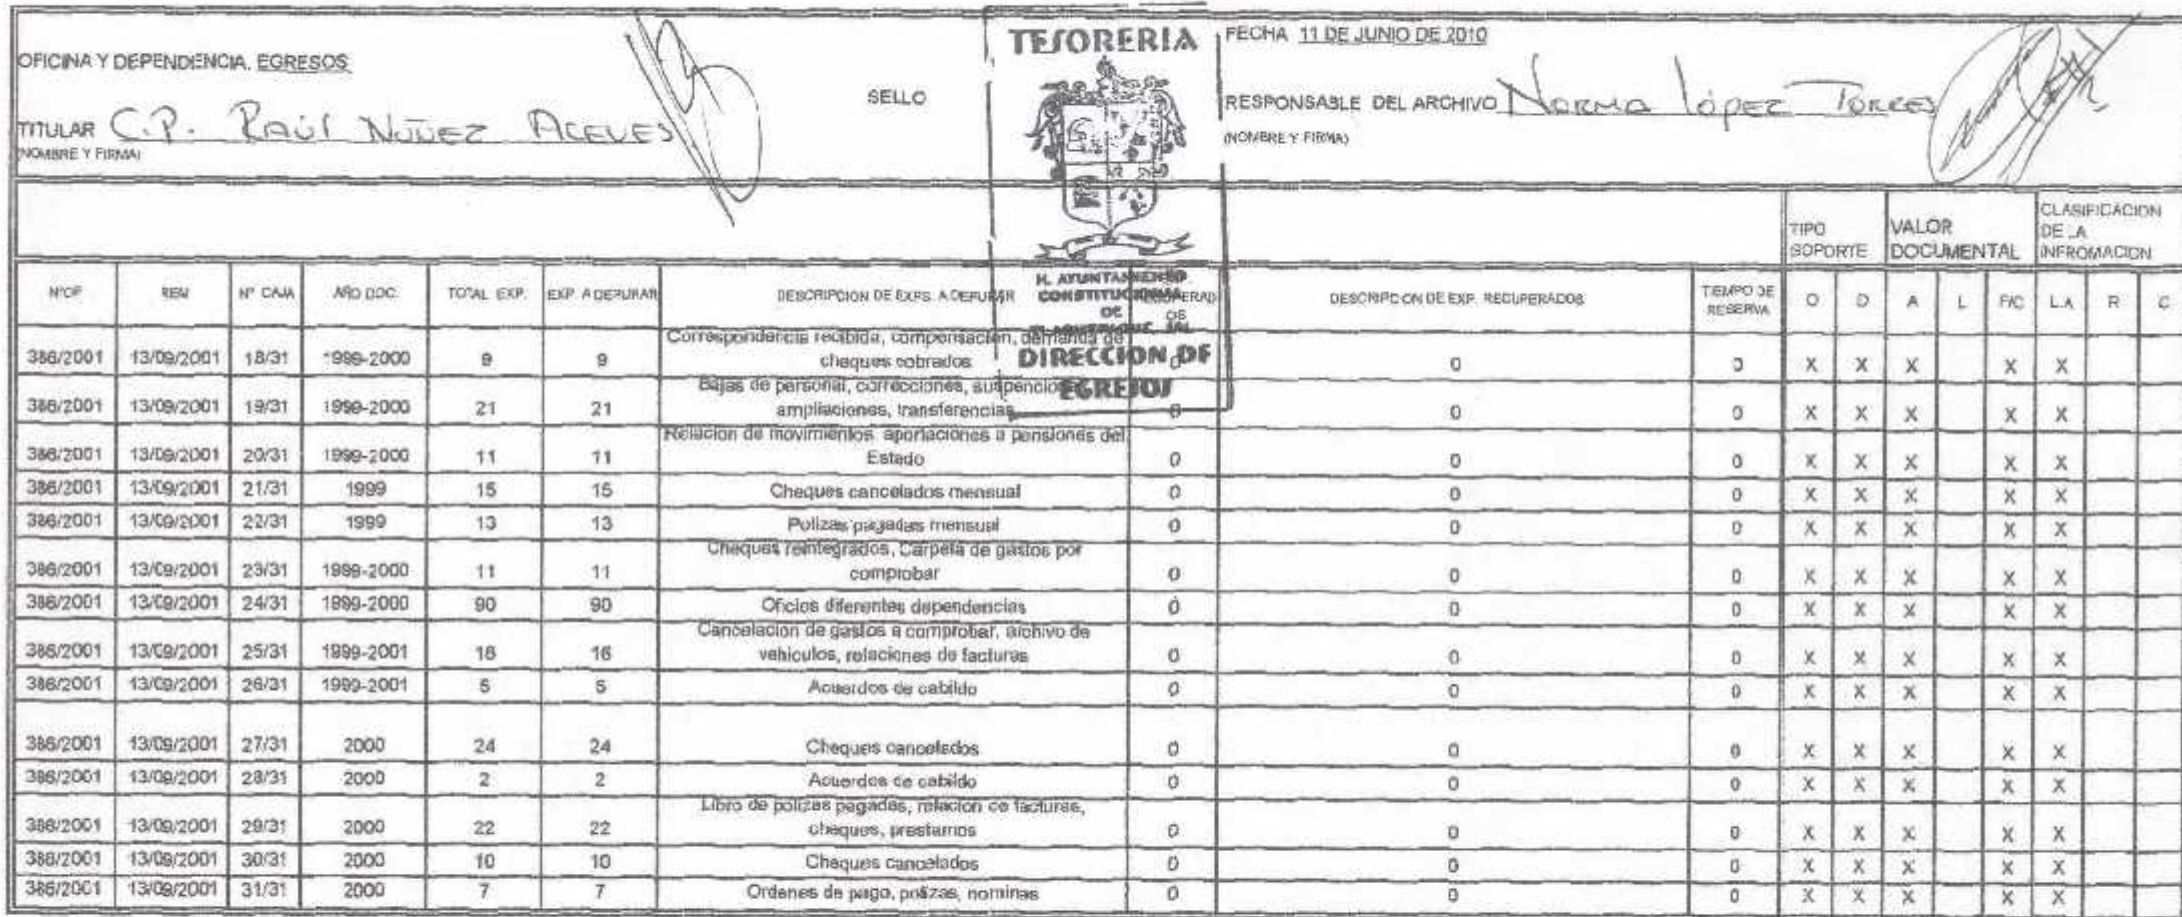 OFICINA Y DEPENDENCIA. EGRESOS
TITULAR C.P. RAÚL NUÑEZ ACEVES
(NOMBRE Y FIRMA)
SELLO
TESORERIA
H. AYUNTAMIENTO
CONSTITUCIONAL
DE
DIRECCION DE
EGRESOS
FECHA 11 DE JUNIO DE 2010
RESPONSABLE DEL ARCHIVO NORMA LÓPEZ TORRES
(NOMBRE Y FIRMA)
TIPO SOPORTE VALOR DOCUMENTAL CLASIFICACION DE LA INFROMACION
N°OF REM N° CAJA AÑO DOC. TOTAL EXP. EXP. A DEPURAR DESCRIPCION DE EXPS. A DEPURAR DESCRIPCION DE EXP. RECUPERADOS TIEMPO DE RESERVA O D A L F/C L.A R C
386/2001 13/09/2001 18/31 1999-2000 9 9 Correspondencia recibida, compensación, demanda de cheques cobrados 0 0 0 X X X X X
386/2001 13/09/2001 19/31 1999-2000 21 21 Bajas de personal, correcciones, ampliaciones, transferencias 0 0 0 X X X X X
386/2001 13/09/2001 20/31 1999-2000 11 11 Relacion de movimientos. aportaciones a pensiones del Estado 0 0 0 X X X X X
386/2001 13/09/2001 21/31 1999 15 15 Cheques cancelados mensual 0 0 0 X X X X X
386/2001 13/09/2001 22/31 1999 13 13 Polizas pagadas mensual 0 0 0 X X X X X
386/2001 13/09/2001 23/31 1999-2000 11 11 Cheques reintegrados, Carpeta de gastos por comprobar 0 0 0 X X X X X
386/2001 13/09/2001 24/31 1999-2000 90 90 Oficios diferentes dependencias 0 0 0 X X X X X
386/2001 13/09/2001 25/31 1999-2001 16 16 Cancelacion de gastos a comprobar, archivo de vehiculos, relaciones de facturas 0 0 0 X X X X X
386/2001 13/09/2001 26/31 1999-2001 5 5 Acuerdos de cabildo 0 0 0 X X X X X
386/2001 13/09/2001 27/31 2000 24 24 Cheques cancelados 0 0 0 X X X X X
386/2001 13/09/2001 28/31 2000 2 2 Acuerdos de cabildo 0 0 0 X X X X X
386/2001 13/09/2001 29/31 2000 22 22 Libro de polizas pegadas, relacion de facturas, cheques, prestamos 0 0 0 X X X X X
386/2001 13/09/2001 30/31 2000 10 10 Cheques cancelados 0 0 0 X X X X X
386/2001 13/09/2001 31/31 2000 7 7 Ordenes de pago, polizas, nominas 0 0 0 X X X X X